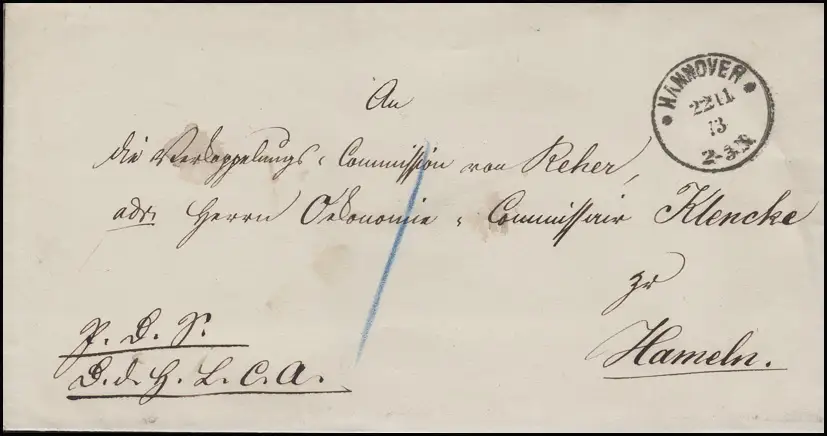 An
die Verkoppelungs-Commission von Reher,
adr. Herrn Oekonomie-Commissair Klencke
zu
Hameln.
F. D. S.
D. d. H. L. C. A.
HANNOVER
22 11
73
2-3.N